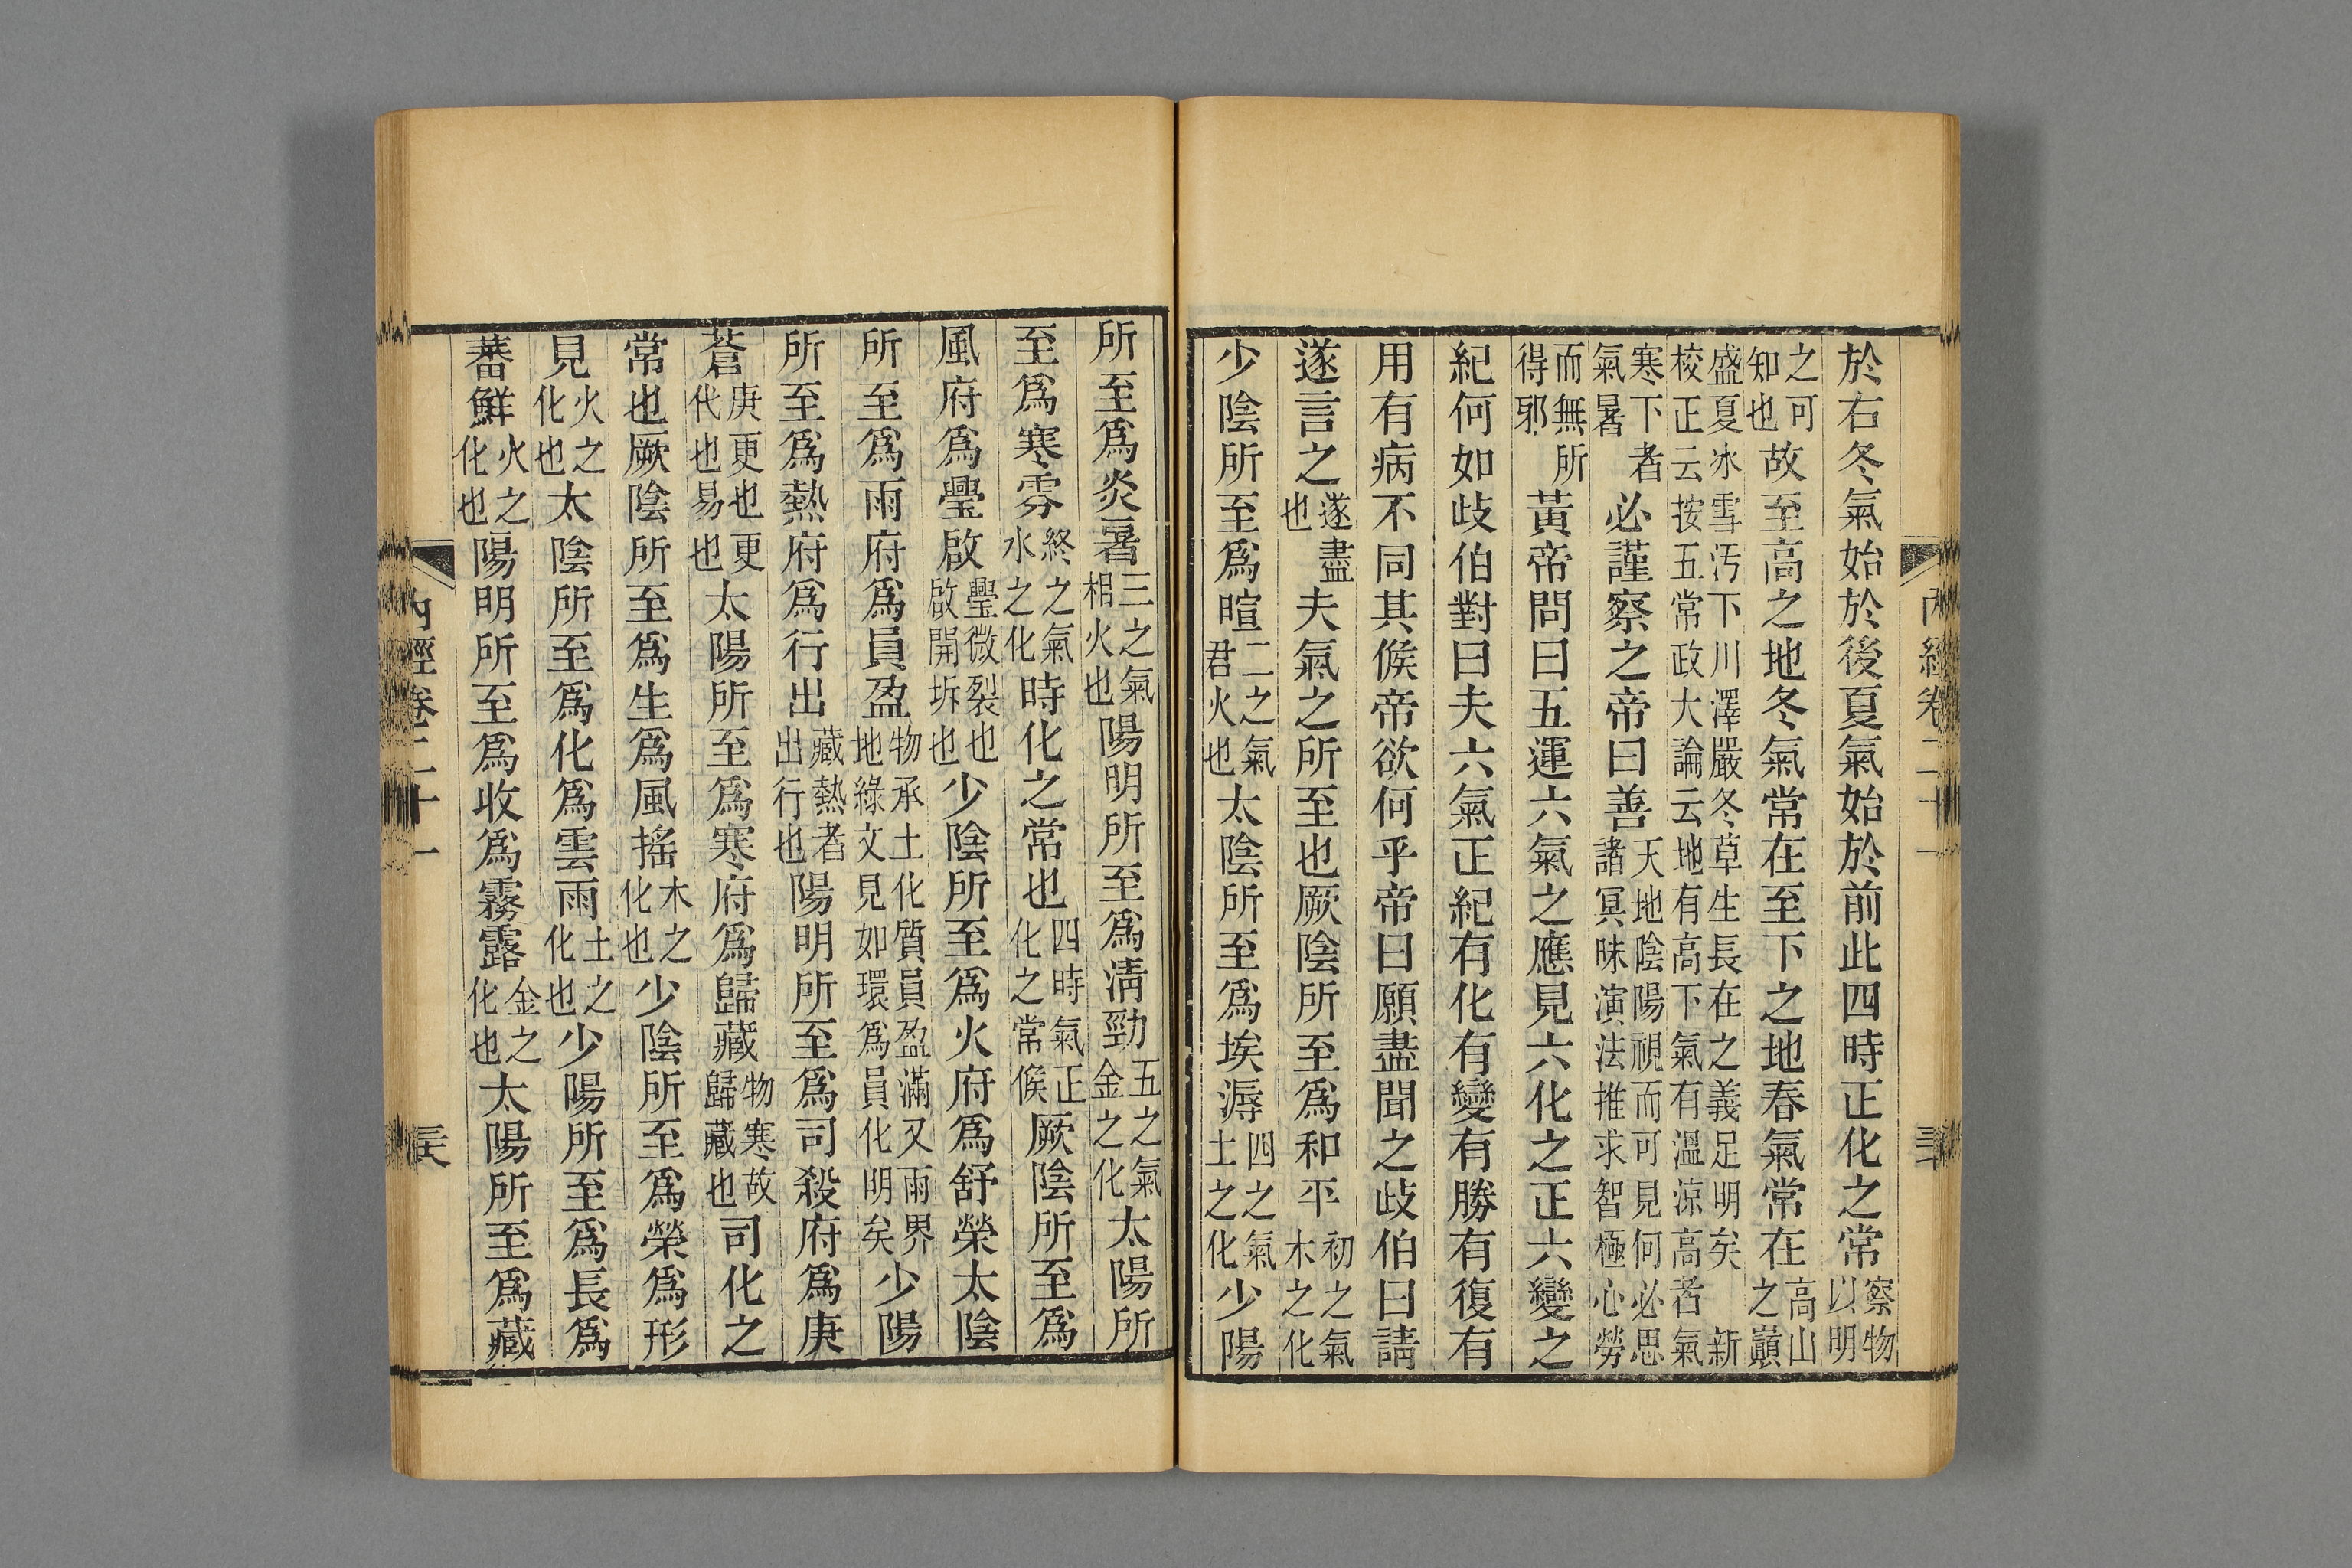 於右冬氣始於後夏氣始於前此四時正化之常察物以明
之可知也故至高之地冬氣常在至下之地春氣常在高山之巔
盛夏冰雪汚下川澤嚴冬草生長在之義足明矣 新校正云按五常政大論云地有高下氣有溫涼高者氣
寒下者氣暑必謹察之帝曰善天地陰陽視而可見何必思諸冥昧演法推求智極心勞
而無所得邪黃帝問曰五運六氣之應見六化之正六變之
紀何如歧伯對曰夫六氣正紀有化有變有勝有復有
用有病不同其候帝欲何乎帝曰願盡聞之歧伯曰請
遂言之遂盡也夫氣之所至也厥陰所至爲和平初之氣木之化
少陰所至爲暄二之氣君火也太陰所至爲埃溽四之氣土之化少陽
內經卷二十一
所至爲炎暑三之氣相火也陽明所至爲淸勁五之氣金之化太陽所
至爲寒雰終之氣水之化時化之常也四時氣正化之常候厥陰所至爲
風府爲璺啟璺微裂也啟開坼也少陰所至爲火府爲舒榮太陰
所至爲雨府爲員盈物承土化質員盈滿又雨界地綠文見如環爲員化明矣少陽
所至爲熱府爲行出藏熱者出行也陽明所至爲司殺府爲庚
蒼庚更也更代也易也太陽所至爲寒府爲歸藏物寒故歸藏也司化之
常也厥陰所至爲生爲風搖木之化也少陰所至爲榮爲形
見火之化也太陰所至爲化爲雲雨土之化也少陽所至爲長爲
蕃鮮火之化也陽明所至爲收爲霧露金之化也太陽所至爲藏
內經卷二十一